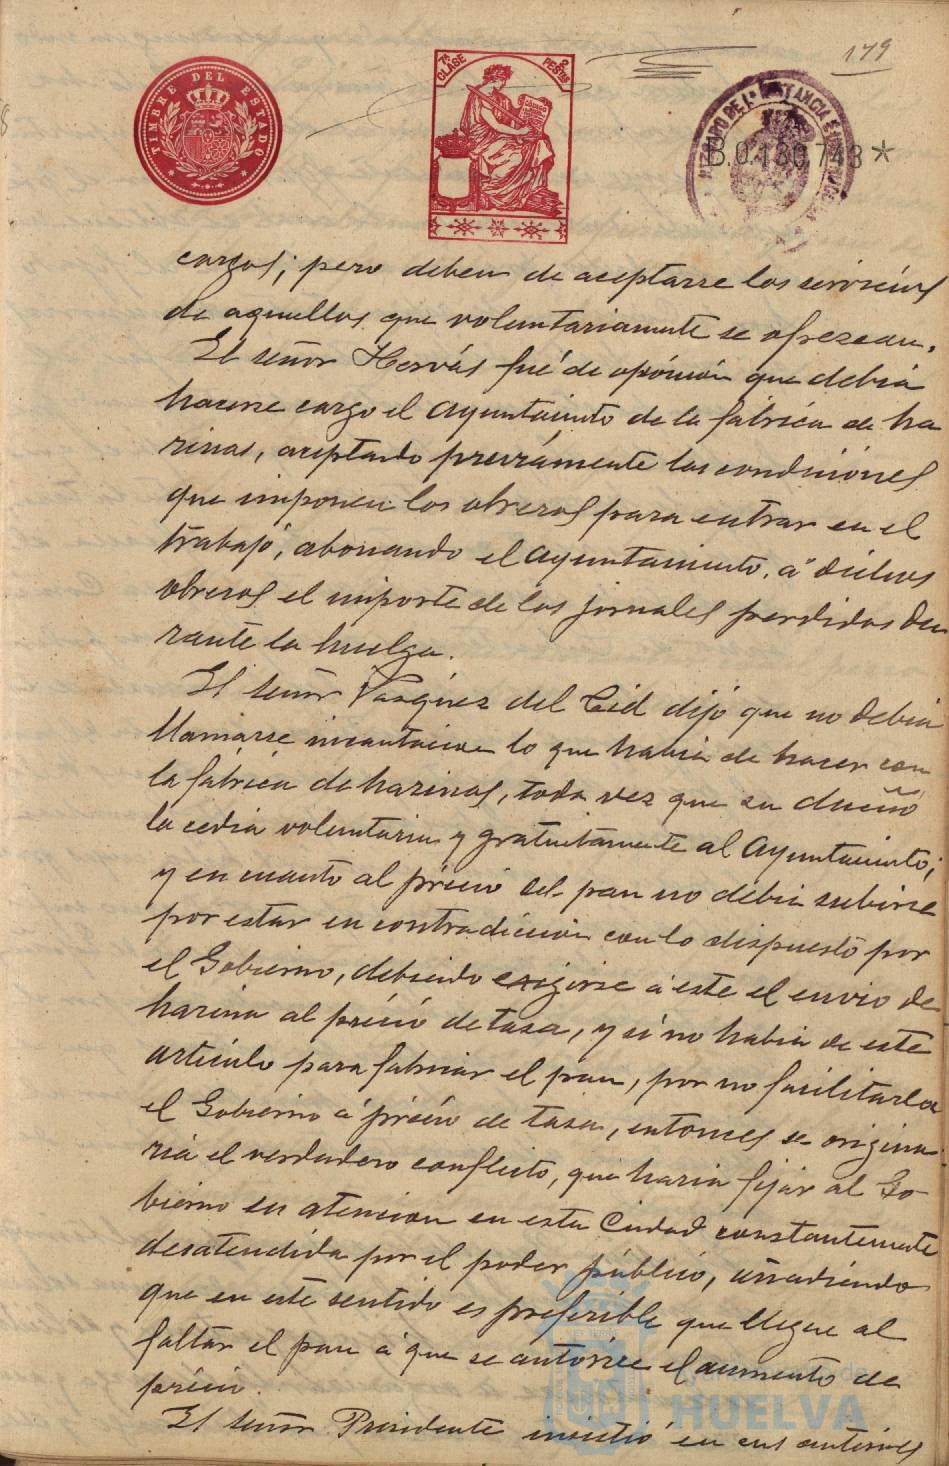 179
TIMBRE DEL ESTADO
7ª CLASE
2 PESTAS
JUZGADO DE 1ª INSTANCIA É
B.0.180,743*
cargos; pero deben de aceptarse los servicios
de aquellos que voluntariamente se ofrezcan.
El señor Hervás fué de opinión que debia
hacerse cargo el Ayuntaiento de la fábrica de ha
rinas, aceptando previamente las condiciones
que imponen los obreros para entrar en el
trabajo, abonando el Ayuntamiento, á dichos
obreros el importe de los jornales perdidos du
rante la huelga.
El señor Vazquez del Cid dijo que no debia
llamarse incautacion lo que habia de hacer con
la fabrica de harinas, toda vez que su dueño
la cedia voluntaria y gratuitamente al Ayuntaiento;
y en cuanto al précio del pan no debia subirse
por estar en contradiccion con lo dispuesto por
el Gobierno, debiendo exigirse á este el envio de
harina al précio de tasa, y si no habia de este
articulo para fabricar el pan, por no facilitarla
el Gobierno á précio de tasa, entonces se origina
ria el verdadero conflicto, que haria fijar al Go-
bierno su atencion en esta Ciudad constantemente
desatendida por el poder público, añadiendo
que en este sentido es preferible que llegue al
faltar el pan á que se autorice el aumento de
précio.
El señor Presidente insistió en sus anteriores
Ayuntamiento de
HUELVA